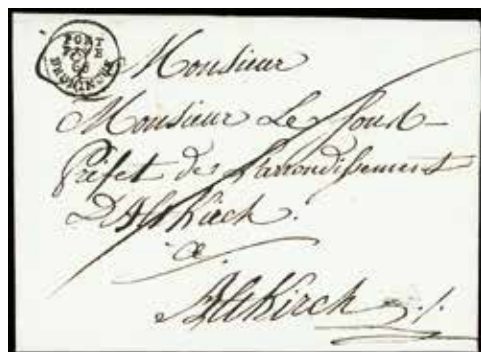 PORT
PAYE
Monsieur
Monsieur Le Sous-
Préfet de L'arrondissement
D'Altkirch.
a
Altkirch ./.